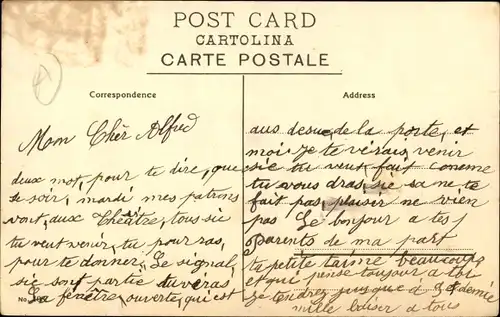 POST CARD
CARTOLINA
CARTE POSTALE
Correspondence
Address
Mom Chèr Alfred
deux mot, pour te dire, que
se soir, mardi mes patrons
vont, aux Théatre, tous sie
tu veut venir, tu pour sas,
pour te donner. Le signal,
sie sont partie tu véras
La fenètre ouverte, qui est
No.
aus desue, de la porte, et
moi Je te vérais venir
sie tu veut fait comme
tu vous dras, sie sa ne, te
fait pas, plaiser ne vien
pas Le bonjour a tes
parents de ma part
ta petite taime beaucoup
et qui pense toujour a toi
je tendrez jusque a et demie
mille baiser a tous